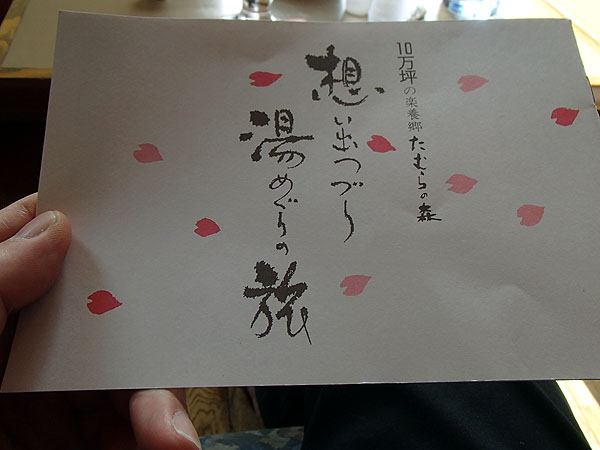 10万坪の楽養郷 たむらの森
想い出つづり
湯めぐりの旅